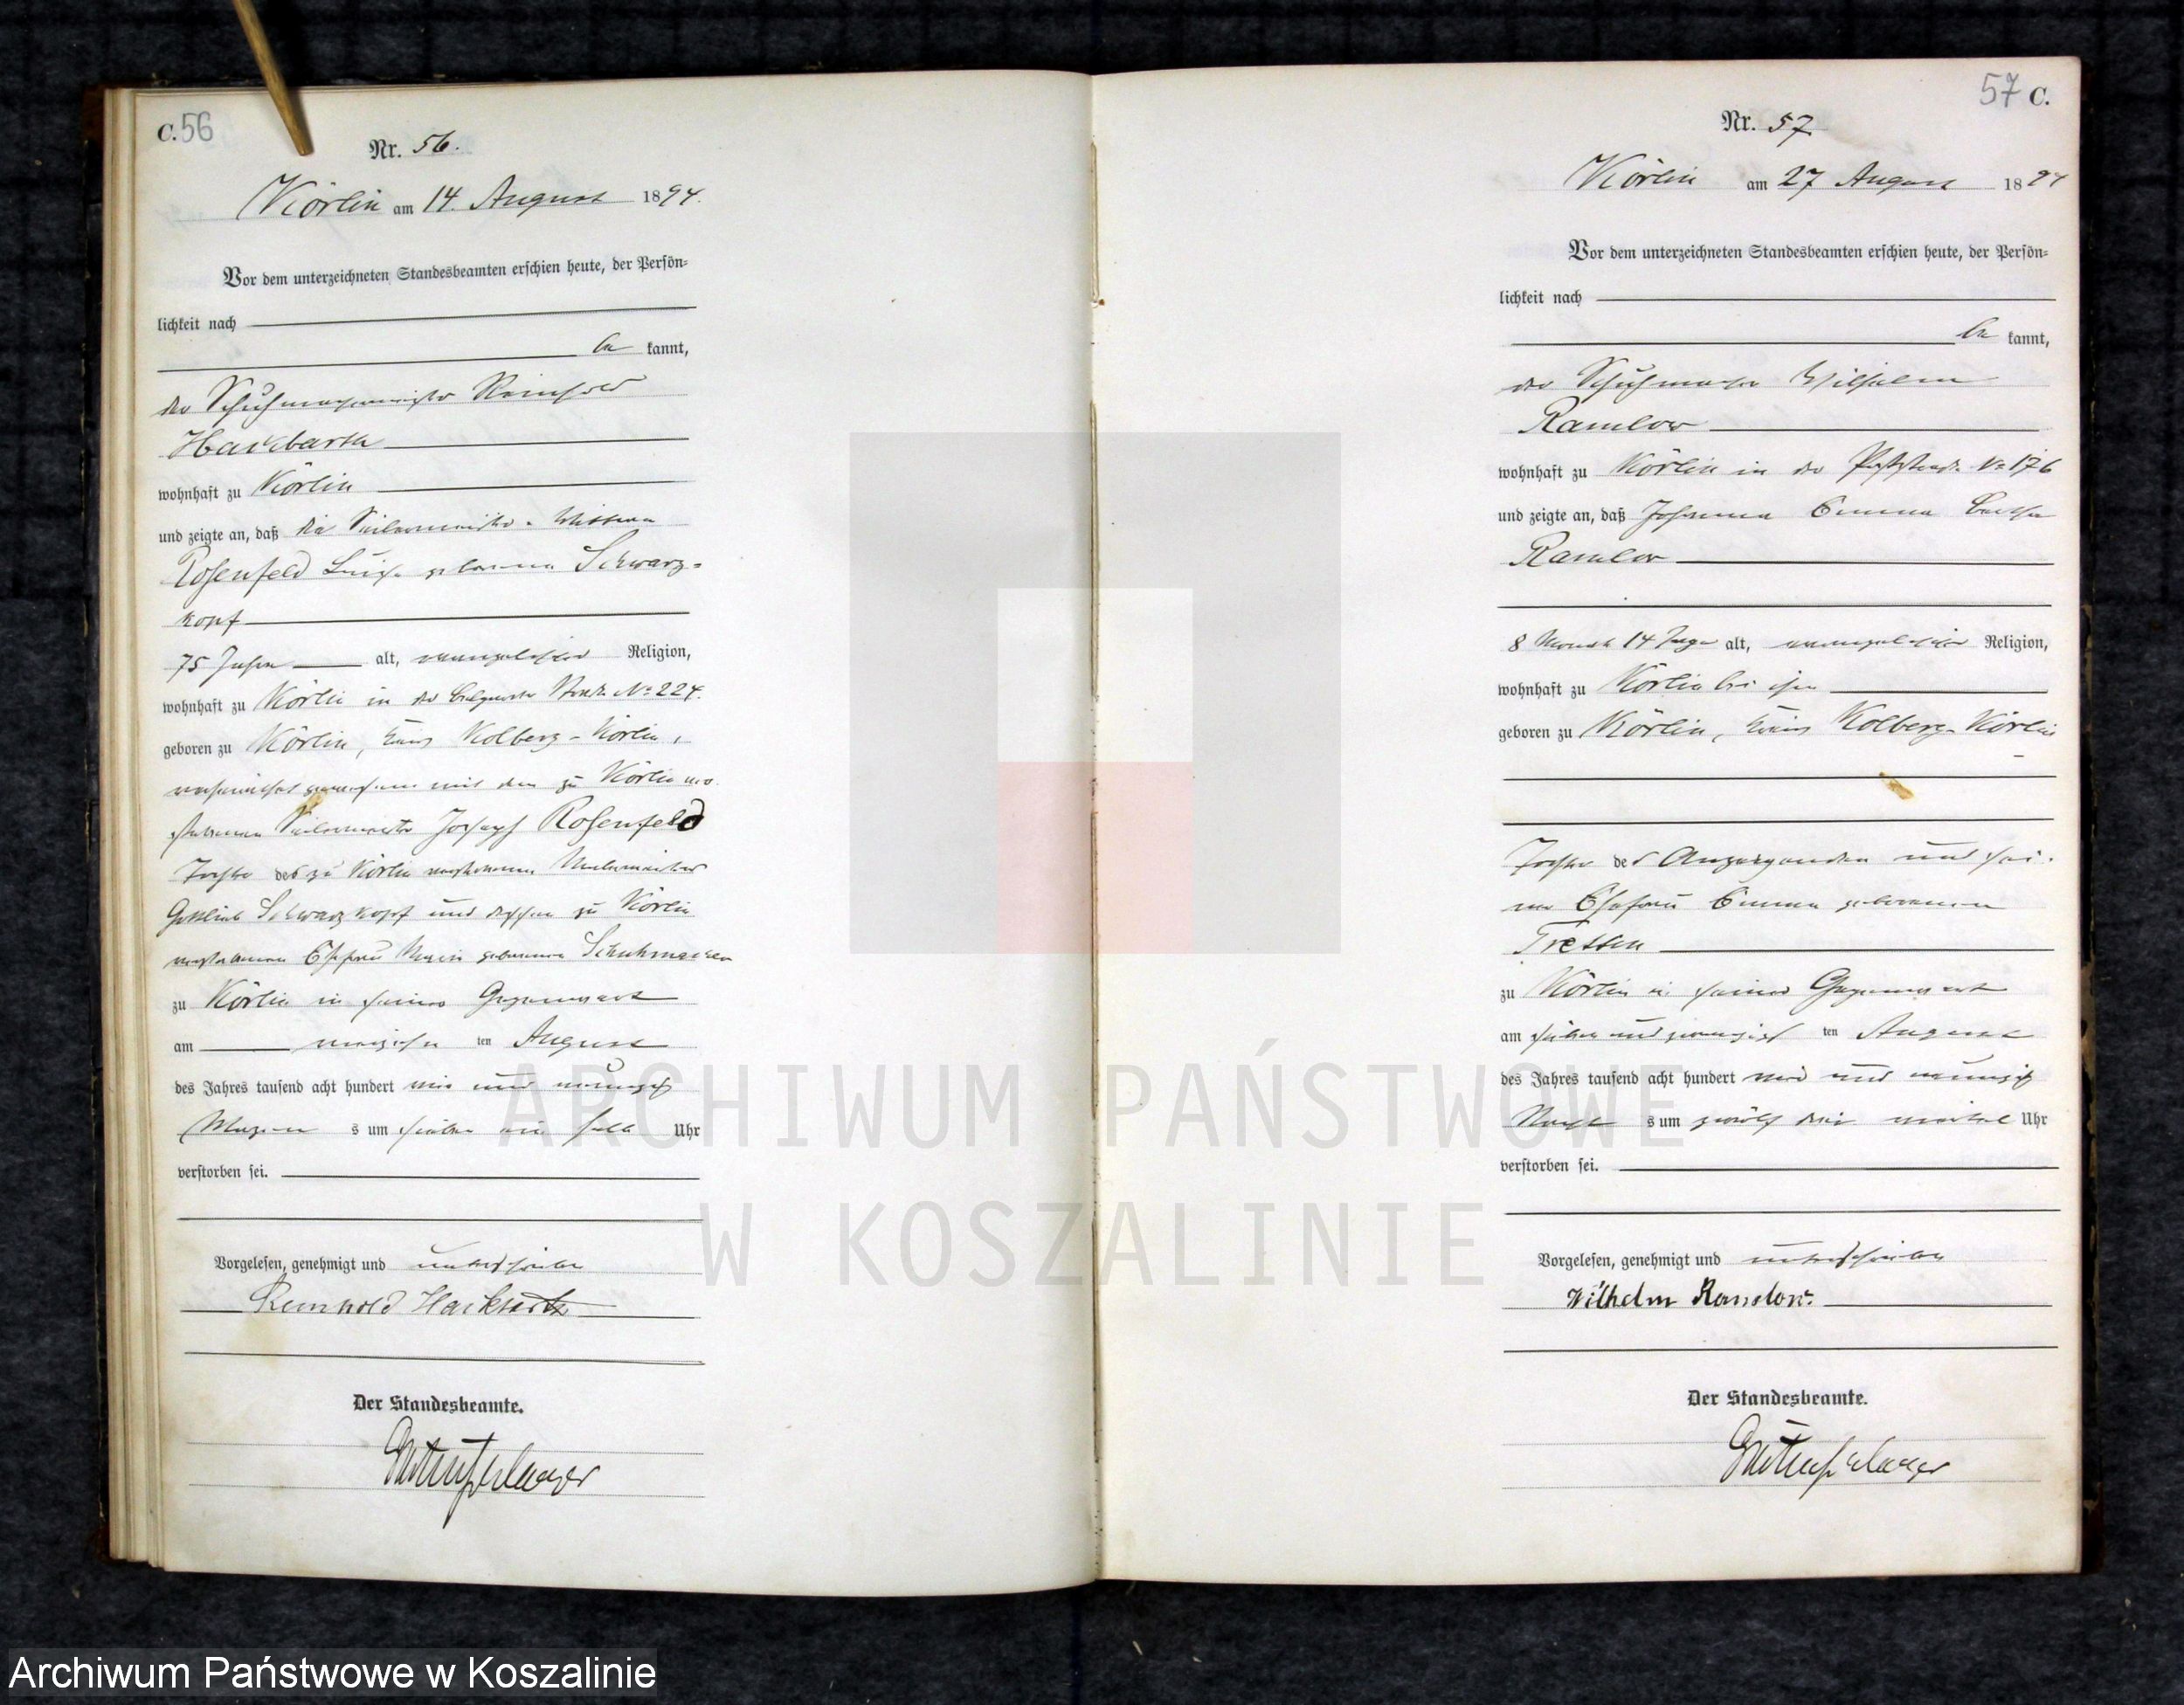 C. 56
Nr. 56.
Körlin am 14. August 1894.
Vor dem unterzeichneten Standesbeamten erschien heute, der Persön-
lichkeit nach
be kannt,
der Schuhmachermeister Reinhold
Hackbarth
wohnhaft zu Körlin
und zeigte an, daß die Seilermeister-Wittwe
Rosenfeld Luise geborene Schwarz-
kopf
75 Jahre alt, evangelischer Religion,
wohnhaft zu Körlin in der Belgarder Straße No 224.
geboren zu Körlin, Kreis Kolberg-Körlin,
verheirathet gewesen mit dem zu Körlin ver-
storbenen Seilermeister Joseph Rosenfeld
Tochter des zu Körlin verstorbenen
Gottlieb Schwarzkopf und dessen zu Körlin
verstorbenen Ehefrau Marie geborenen Schuhmacher
zu Körlin in seiner Gegenwart
am vierzehn ten August
des Jahres tausend acht hundert vier und neunzig
Morgens um sieben ein halb Uhr
verstorben sei.
Vorgelesen, genehmigt und unterschrieben
Reinhold Hackbarth
Der Standesbeamte.
57 C.
Nr. 57
Körlin am 27 August 1894
Vor dem unterzeichneten Standesbeamten erschien heute, der Persön-
lichkeit nach
be kannt,
der Schuhmacher Wilhelm
Ramlow
wohnhaft zu Körlin in der Poststraße No 176
und zeigte an, daß Johanna Emma Bertha
Ramlow
8 Monate 14 Tage alt, evangelischer Religion,
wohnhaft zu Körlin bei ihm
geboren zu Körlin, Kreis Kolberg-Körlin
Tochter des Anzeigenden und sei-
ner Ehefrau Emma geborenen
Tretten
zu Körlin in seiner Gegenwart
am sieben und zwanzigs ten August
des Jahres tausend acht hundert vier und neunzig
Nachts um zwölf drei viertel Uhr
verstorben sei.
Vorgelesen, genehmigt und unterschrieben
Wilhelm Ramlow.
Der Standesbeamte.
ARCHIWUM PAŃSTWOWE
W KOSZALINIE
Archiwum Państwowe w Koszalinie